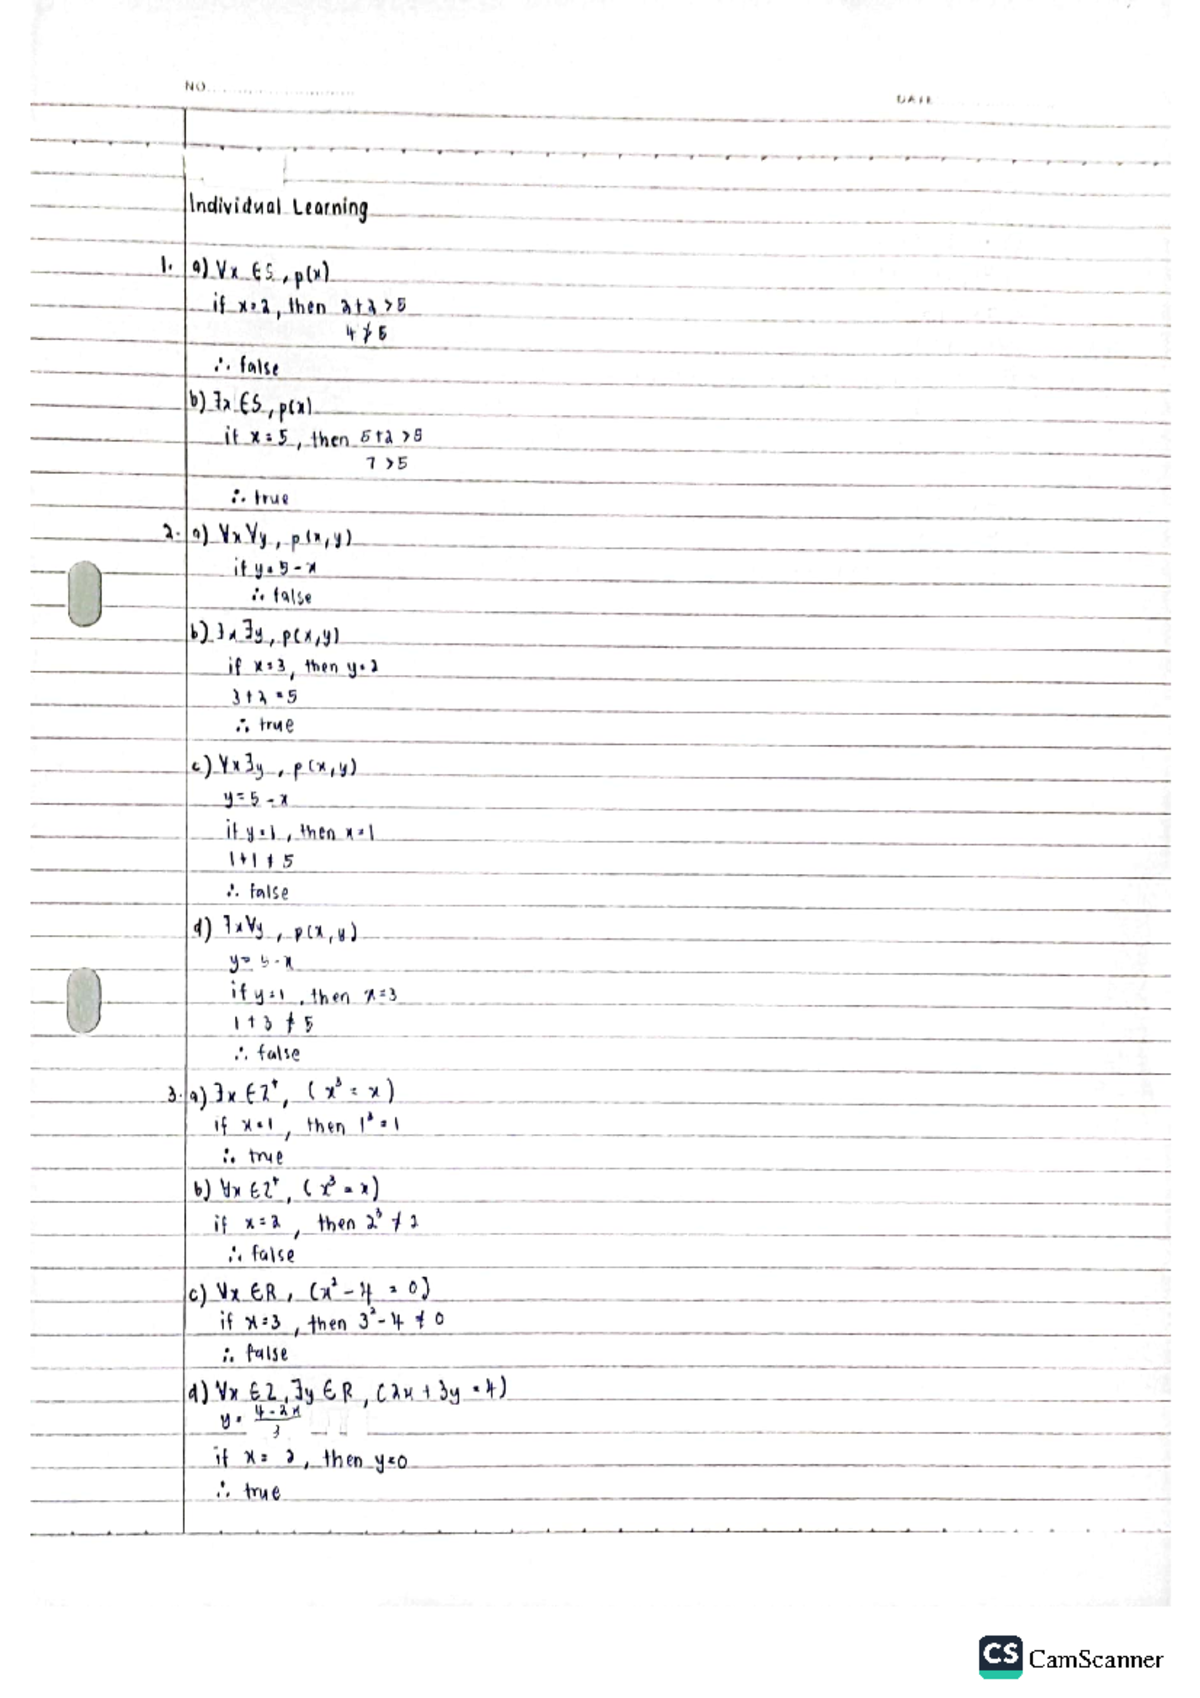 NO.
DATE
Individual Learning
1. a) ∀x ∈ S, p(x)
if x=2, then 2+2 >5
4 ≯ 5
∴ false
b) ∃x ∈ S, p(x)
if x = 5, then 5+2 >5
7 >5
∴ true
2. a) ∀x ∀y, p(x,y)
if y = 5 - x
∴ false
b) ∃x ∃y, p(x,y)
if x=3, then y=2
3+2 = 5
∴ true
c) ∀x ∃y, p(x,y)
y = 5 - x
if y=1, then x=1
1+1 ≠ 5
∴ false
d) ∃x ∀y, p(x,y)
y = 5 - x
if y=1, then x=3
1 + 3 ≠ 5
∴ false
3. a) ∃x ∈ Z⁺, (x³ = x)
if x=1, then 1³ = 1
∴ true
b) ∀x ∈ Z⁺, (x³ = x)
if x = 2, then 2³ ≠ 2
∴ false
c) ∀x ∈ R, (x² - 4 = 0)
if x=3, then 3² - 4 ≠ 0
∴ false
d) ∀x ∈ Z, ∃y ∈ R, (2x + 3y = 4)
y = (4 - 2x)/3
if x = 2, then y=0
∴ true
CS CamScanner